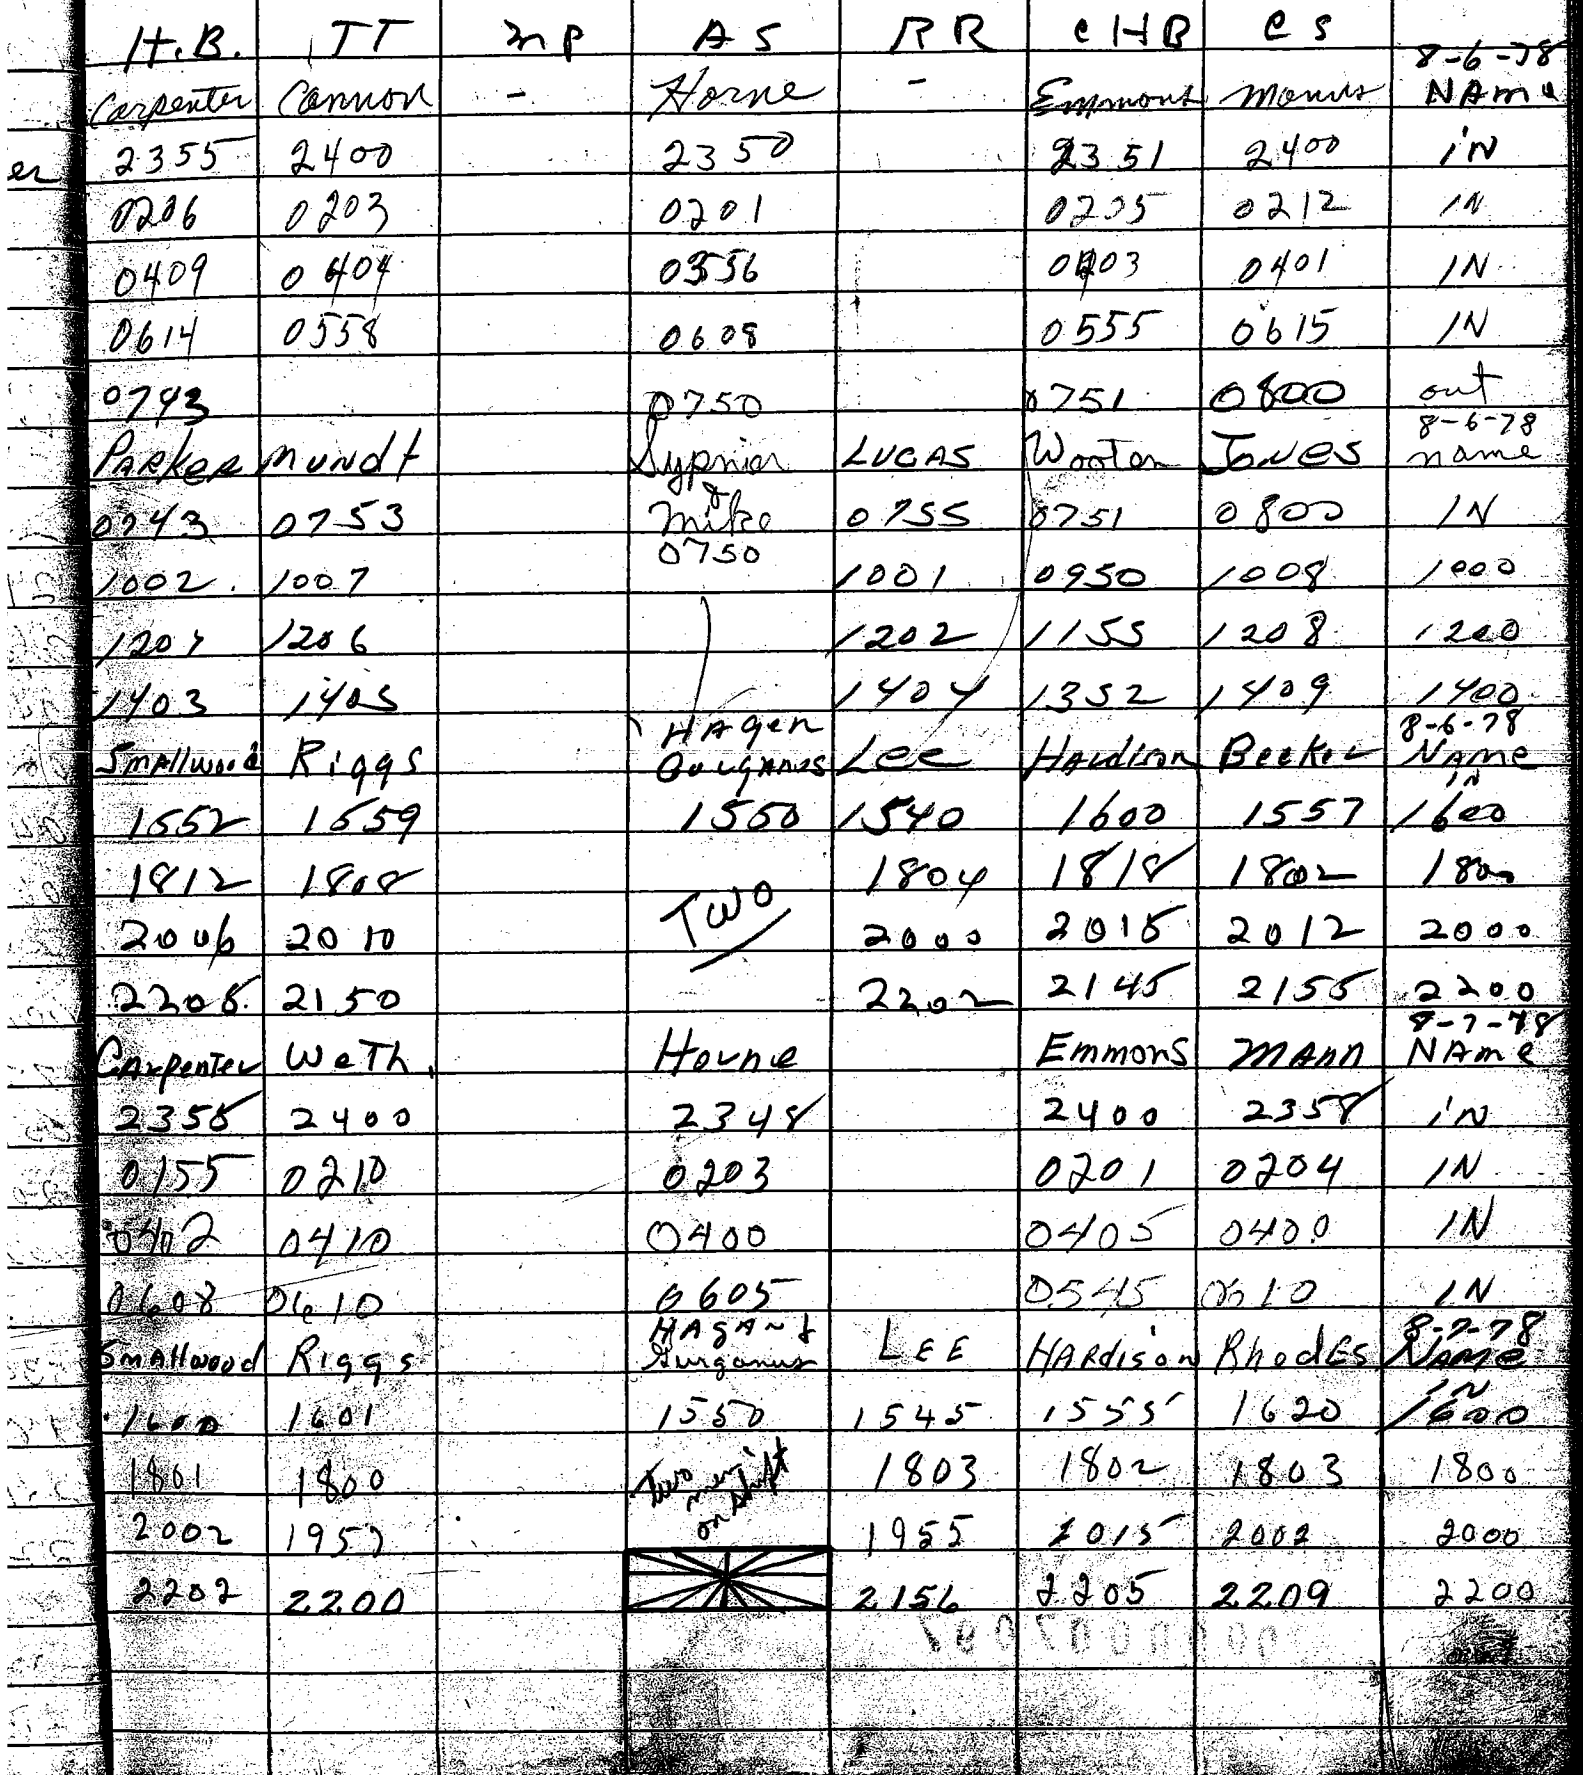 H.B. TT MP AS RR CHB CS
8-6-78
Carpenter Cannon - Horne - Emmons NAme
2355 2400 2350 2351 2400 iN
er
0206 0203 0201 0205 0212 IN
0409 0404 0356 0403 0401 IN
0614 0558 0608 0555 0615 IN
0743 0750 0751 0800 out
8-6-78
PARKER MUNDT LUCAS Wooten JoNes name
&
0743 0753 Mike 0755 0751 0800 IN
0750
1002 1007 1001 0950 1008 1000
1207 1206 1202 1155 1208 1200
1403 1405 1404 1352 1409 1400
HAgen 8-6-78
Smallwood Riggs Lee Hardison NAme
IN
1552 1559 1550 1540 1600 1557 1600
1812 1808 1804 1818 1802 1800
Two
2006 2010 2000 2015 2012 2000
2205 2150 2202 2145 2155 2200
8-7-78
CArpenter WeTh. Horne Emmons MAnn NAme
2355 2400 2348 2400 2358 iN
0155 0210 0203 0201 0204 IN
0402 0410 0400 0405 0400 IN
0608 0610 0605 0545 0610 IN
HAgAn & 8-7-78
SmAllwood Riggs Gurganus LEE HARdison RhodES NAme
IN
1600 1601 1550 1545 1555 1620 1600
1801 1800 Two men on shift 1803 1802 1803 1800
2002 1957 1955 2015 2002 2000
2202 2200 2156 2205 2209 2200